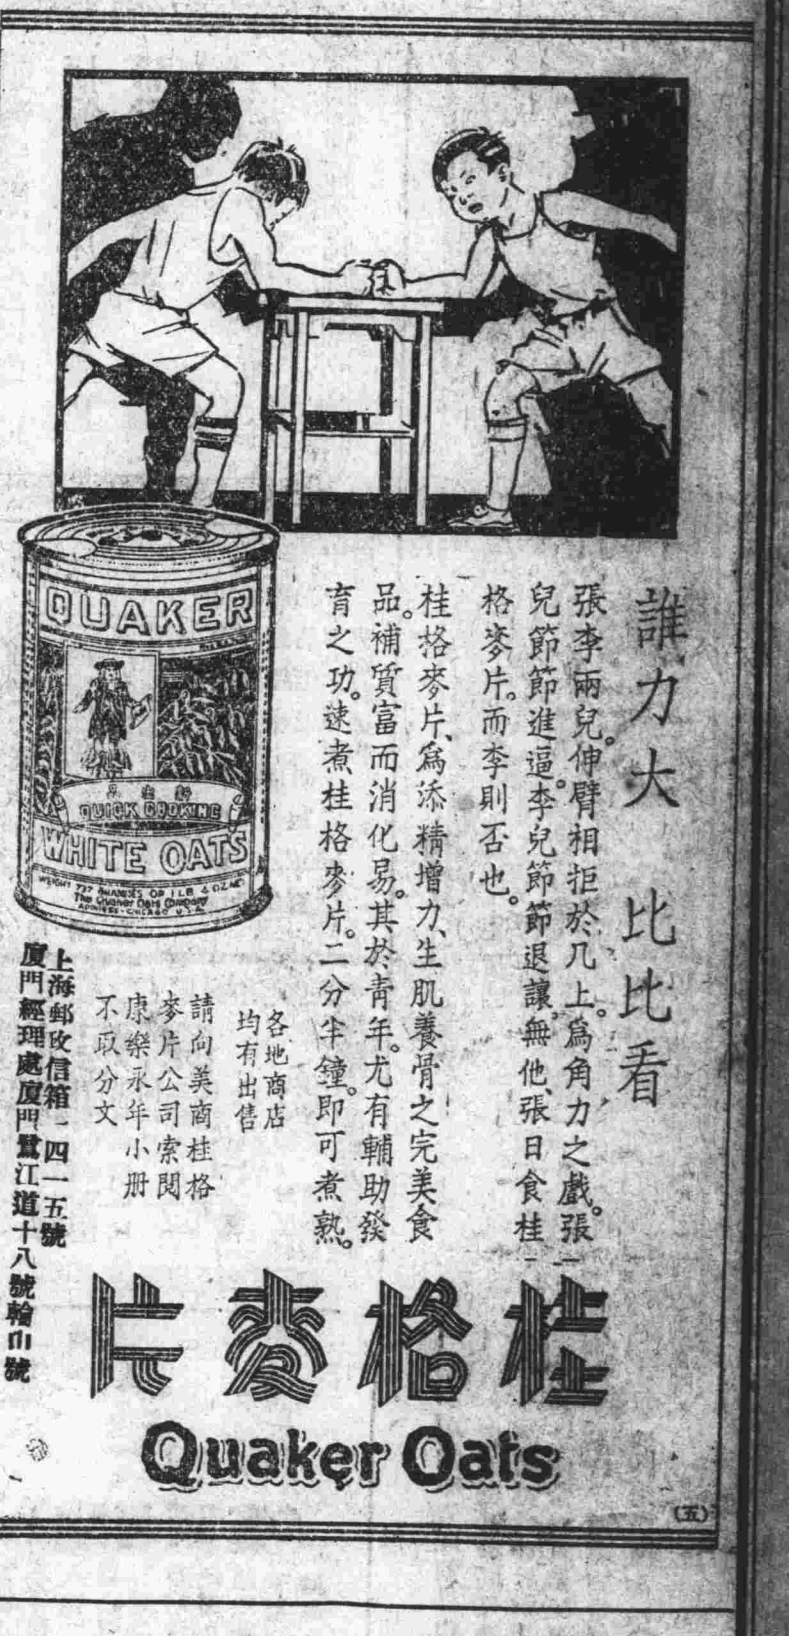 誰力大 比比看
張李兩兒。伸臂相拒於几上。爲角力之戲。張
兒節節進逼。李兒節節退讓。無他、張日食桂
格麥片。而李則否也。
桂格麥片、爲添精增力、生肌養骨之完美食
品。補質富而消化易。其於青年。尤有輔助發
育之功。速煮桂格麥片。二分半鐘。即可煮熟。
各地商店
均有出售
請向美商桂格
麥片公司索閱
康樂永年小册
不取分文
上海郵政信箱一四一五號
廈門經理處廈門鷺江道十八號輪山號
QUAKER
QUICK COOKING
WHITE OATS
WEIGHT 737 GRAMMES OR 1 LB. OZ. NET
The Quaker Oats Company
ADDRESS-CHICAGO U.S.A.
桂格麥片
Quaker Oats
(五)